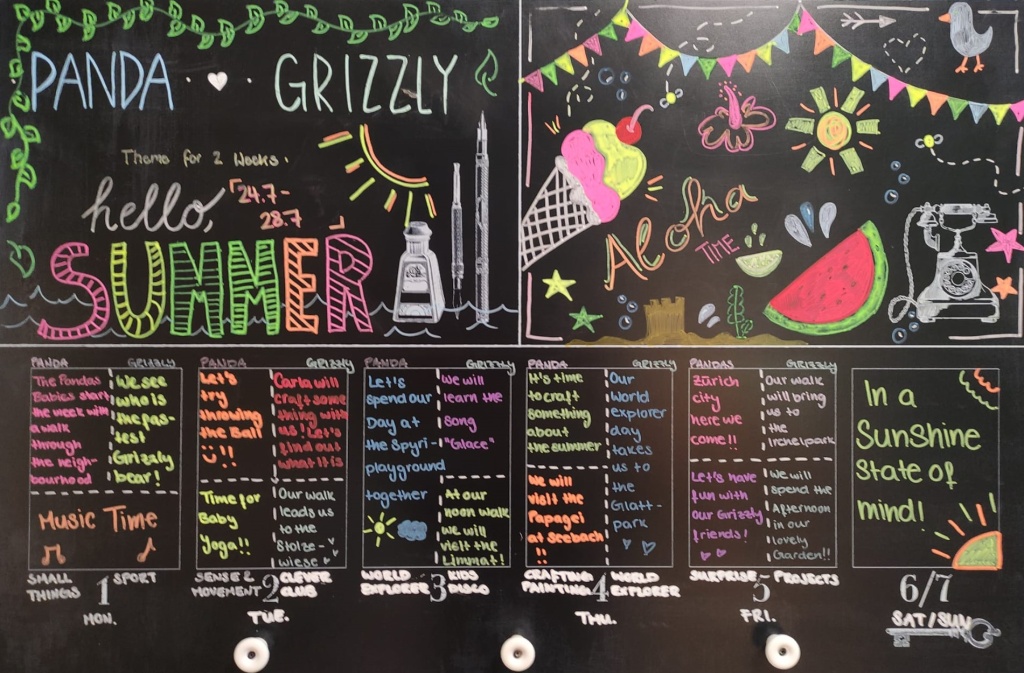 PANDA ♥ GRIZZLY
Theme for 2 Weeks.
hello,
24.7-
28.7
SUMMER
Aloha
TIME
PANDA
GRIZZLY
The Pandas
Babies start
the week with
a walk
through
the neigh-
bourhood
We see
who is
the fas-
test
Grizzly
bear!
Music Time
SMALL
THINGS
1
SPORT
MON.
PANDA
GRIZZLY
Let's
try
throwing
the Ball
!!
Carla will
craft some
thing with
us! Let's
find out
what it is
Time for
Baby
Yoga!!
Our walk
leads us
to the
Stolze-
wiese
SENSE &
MOVEMENT
2
CLEVER
CLUB
TUE.
PANDA
GRIZZLY
Let's
spend our
Day at
the Spyri-
playground
together
We will
learn the
song
"Glace"
At our
noon walk
we will
visit the
Limmat!
WORLD
EXPLORER
3
KIDS
DISCO
PANDA
GRIZZLY
It's time
to craft
something
about
the summer
Our
World
explorer
day
takes
us to
the
Glatt-
park
We will
visit the
Papagei
at Seebach
!!
CRAFTING
PAINTING
4
WORLD
EXPLORER
THU.
PANDAS
GRIZZLY
Zürich
city
here we
come!!
Our walk
will bring
us to
the
Irchelpark
Let's have
fun with
our Grizzly
friends!
We will
spend the
Afternoon
in our
lovely
Garden!!
SURPRISE
5
PROJECTS
FRI.
In a
SunShine
State of
mind!
6/7
SAT/SUN